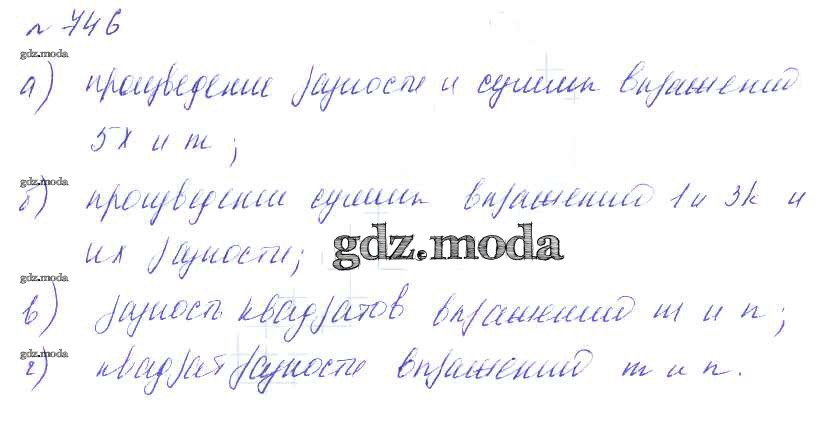 № 746
gdz.moda
а) произведение разности и суммы выражений
5x и m;
gdz.moda
б) произведение суммы выражений 1 и 3k и
их разности; gdz.moda
в) разность квадратов выражений m и n;
gdz.moda
г) квадрат разности выражений m и n.